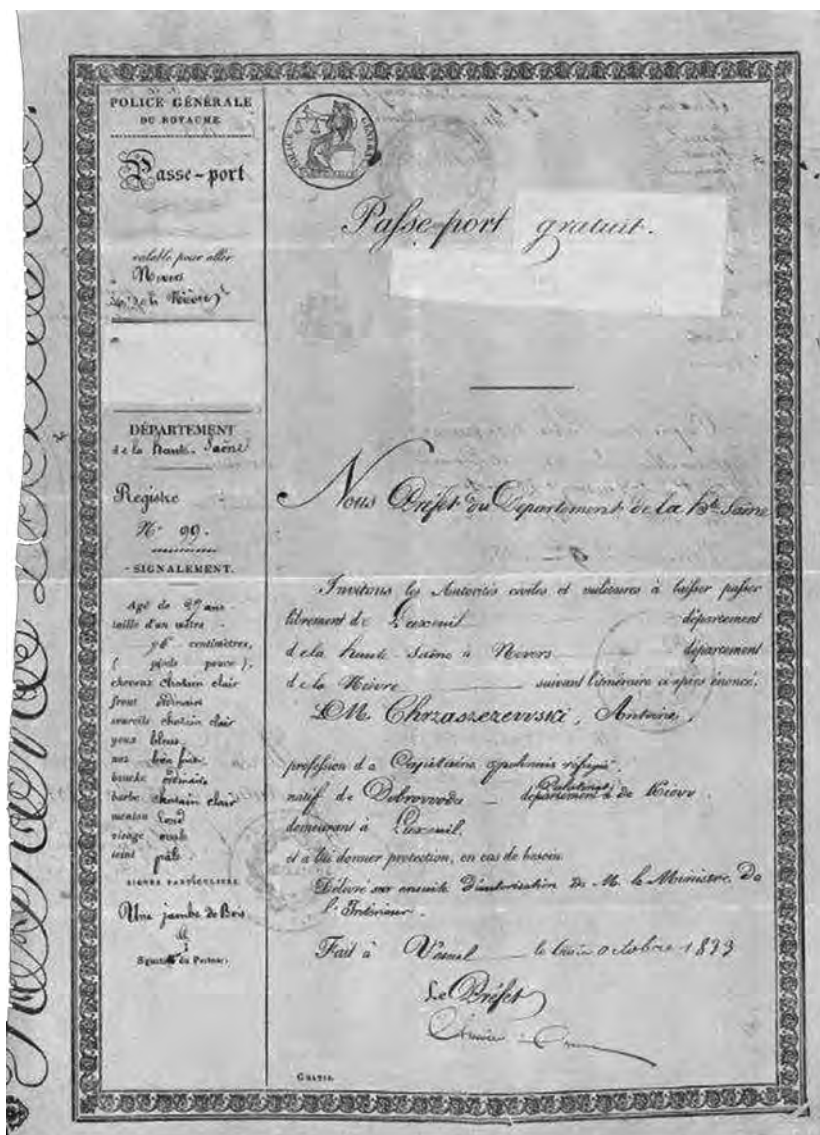 POLICE GÉNÉRALE
DU ROYAUME
Passe-port
valable pour aller
à Nevers
de la Nièvre
DÉPARTEMENT
de la haute-Saône
Registre
N° 99.
SIGNALEMENT.
Agé de 27 ans
taille d'un mètre
76 centimètres,
( pieds pouce ),
cheveux chatain clair
front ordinaire
sourcils chatain clair
yeux bleus
nez bien fait
bouche ordinaire
barbe chatain clair
menton rond
visage ovale
teint pâle
SIGNES PARTICULIERS.
Une jambe de Bois
Signature du Porteur.
POLICE GÉNÉRALE
Passe-port gratuit.
Nous Préfet du Département de la hte Saône
Invitons les Autorités civiles et militaires à laisser passer
librement de Luxeuil département
de la haute-Saône à Nevers département
de la Nièvre suivant l'itinéraire ci-après énoncé.
M. Chrzaszezewski, Antoine,
profession de Capitaine polonais réfugié
natif de Dobrowoda département Palatinat de Kiovv.
demeurant à Luxeuil.
et à lui donner protection, en cas de besoin.
Délivré sur ensuite d'autorisation de M. le Ministre De
l'Intérieur.
Fait à Vesoul le trois octobre 1833
Le Préfet
GRATIS.